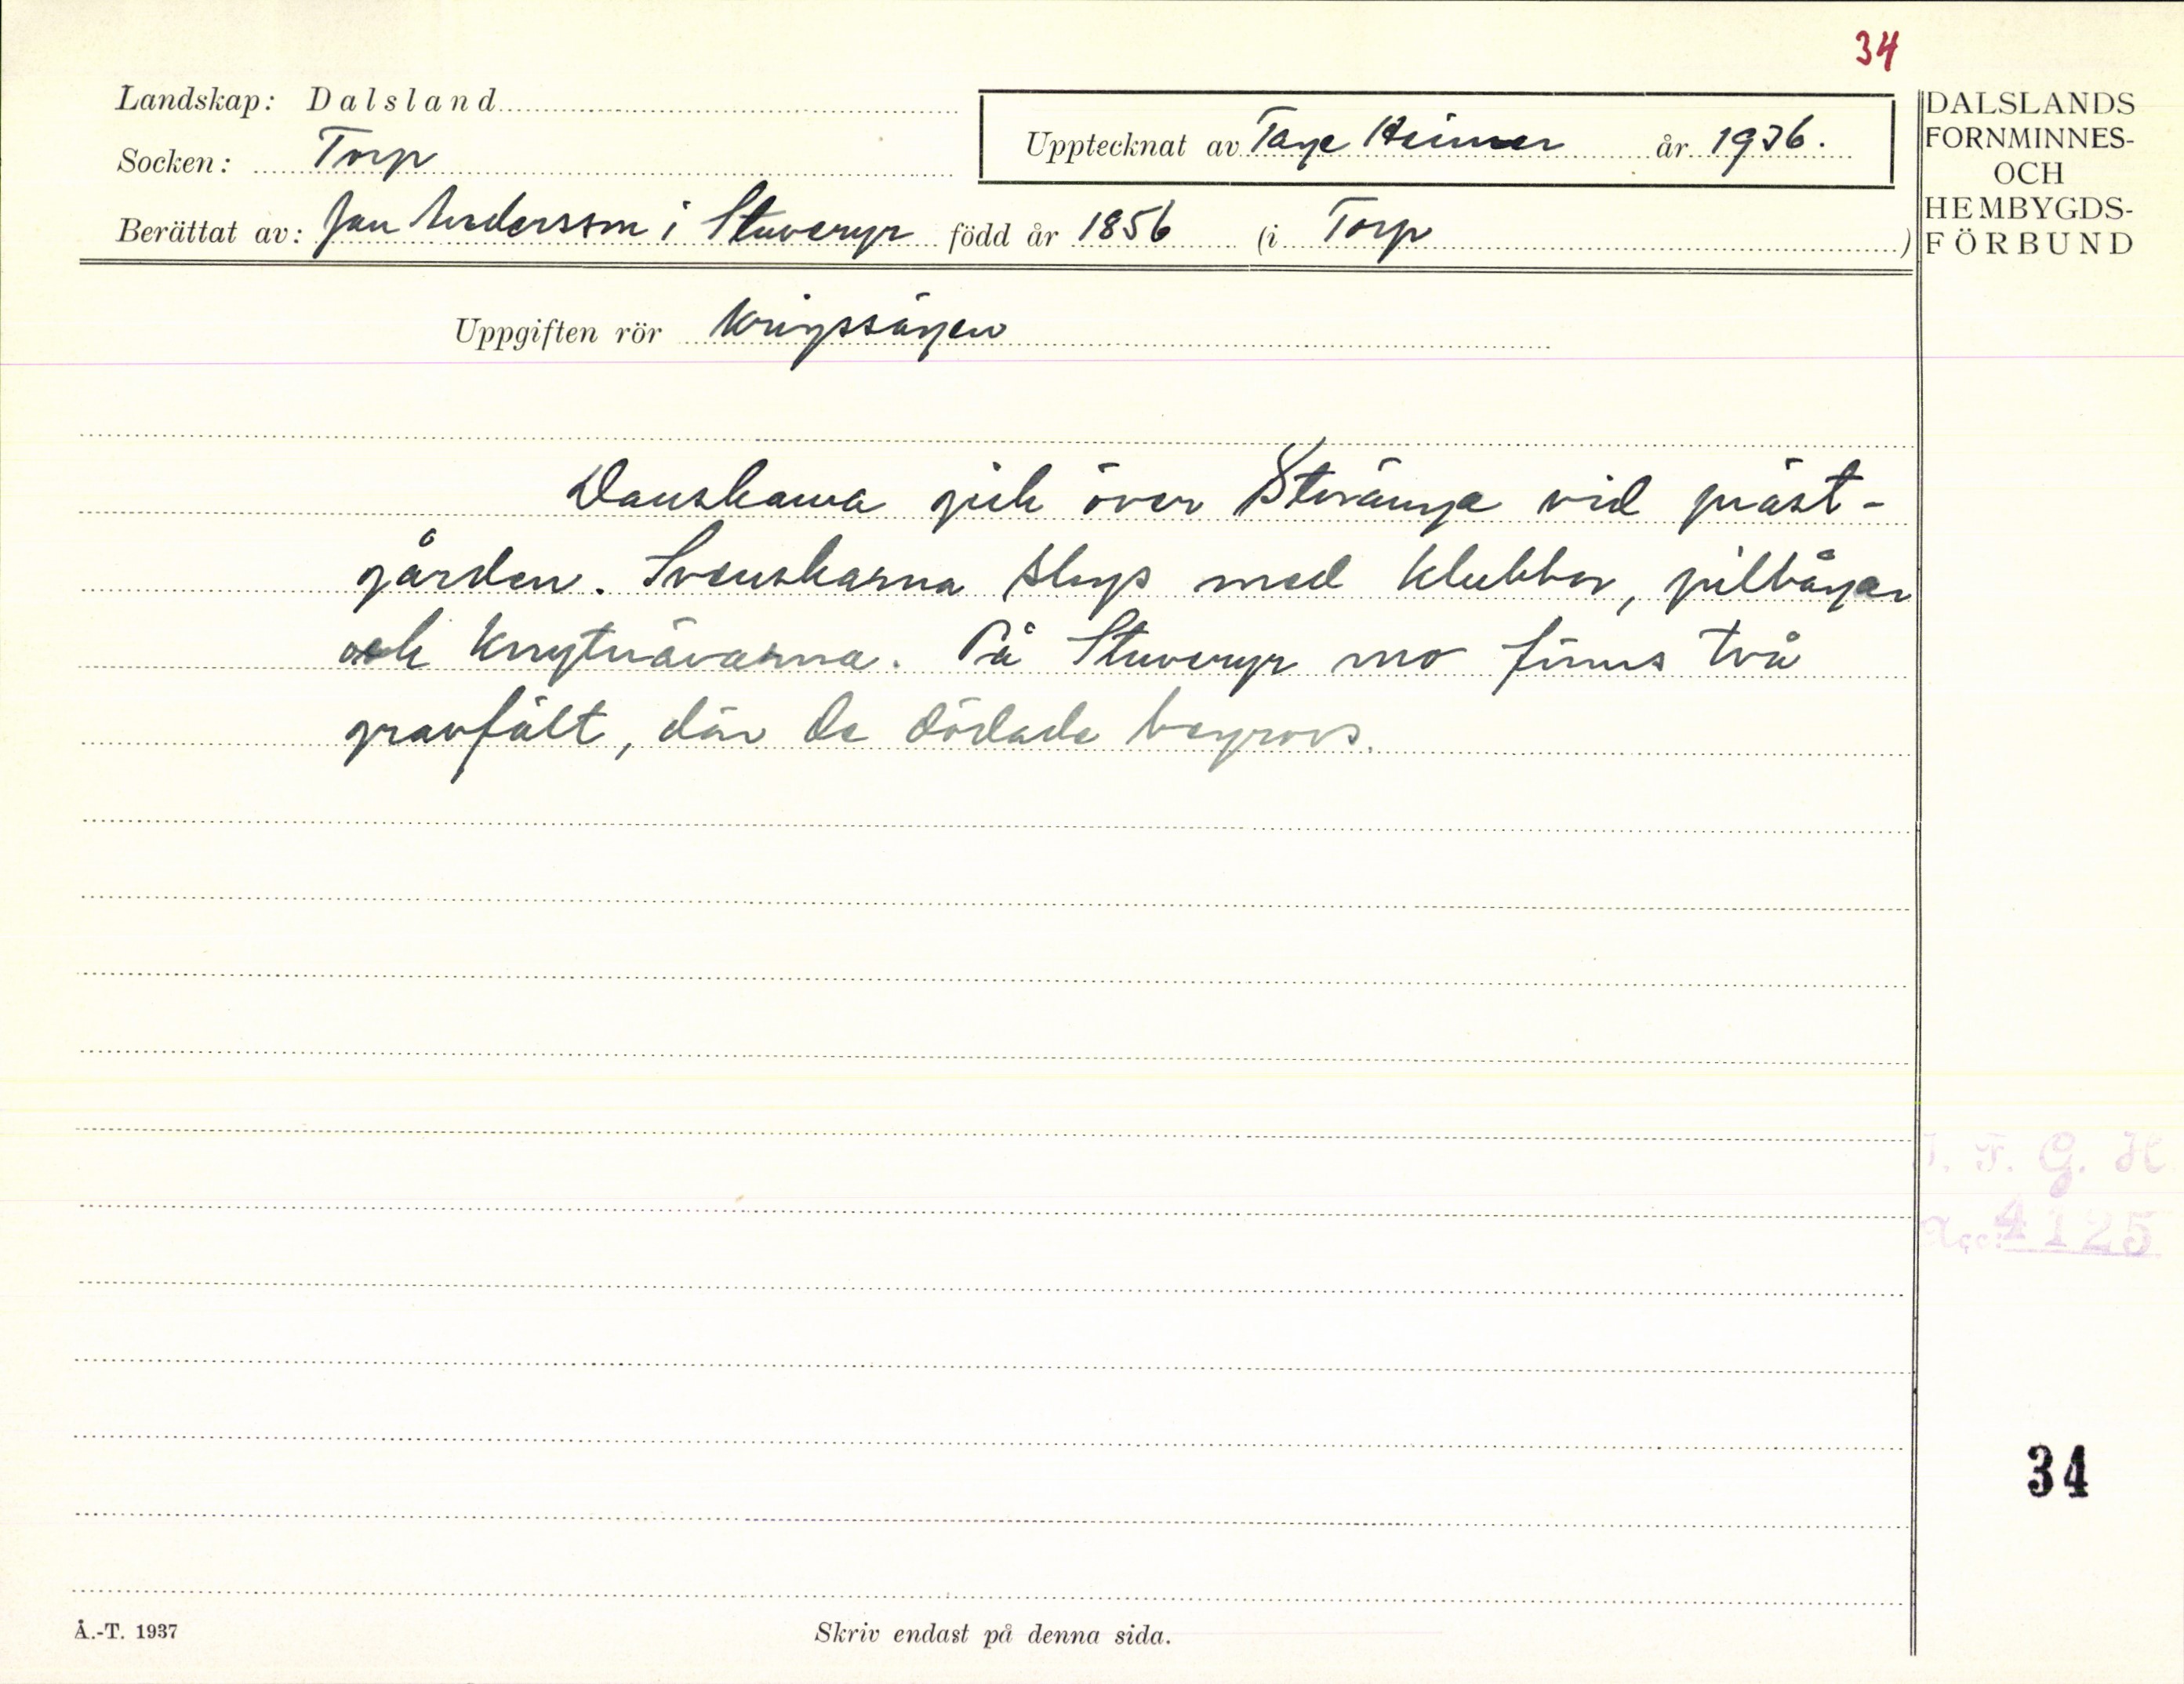 34
Landskap: Dalsland
Socken: Torp
Upptecknat av Tage Heimer år 1936.
Berättat av: Jan Andersson i Stuveryr född år 1856 (i Torp)
DALSLANDS
FORNMINNES-
OCH
HEMBYGDS-
FÖRBUND
Uppgiften rör Krigssägen
Danskarna gick över vid präst-
gården. Svenskarna slogs med klubbor, pilbågar
och knytnävarna. På Stuveryr mo finns två
gravfält, där de dödade begrovs.
I. F. G. H
Acc. 4125
34
Å.-T. 1937
Skriv endast på denna sida.